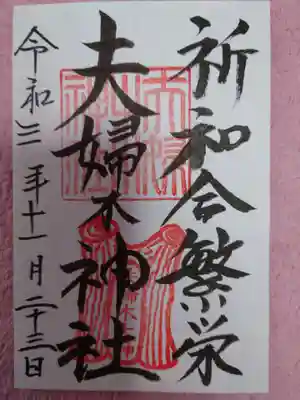 祈和合繁栄
夫婦木神社
令和三年十一月二十三日